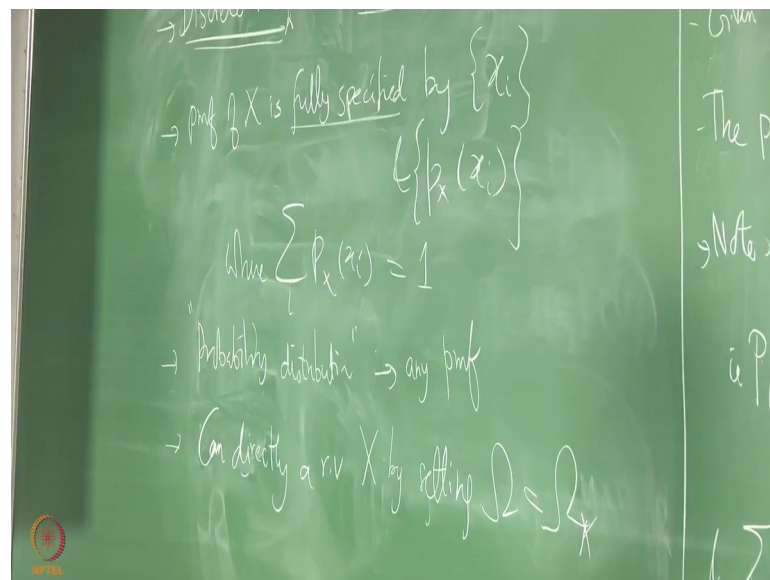 → Discrete
→ pmf of X is fully specified by {x_i}
& {p_X(x_i)}
where ∑_i p_X(x_i) = 1
→ "Probability distribution" → any pmf
→ Can directly a r.v X by setting Ω = Ω_X
- Given
- The p
→ Note
ie P
NPTEL